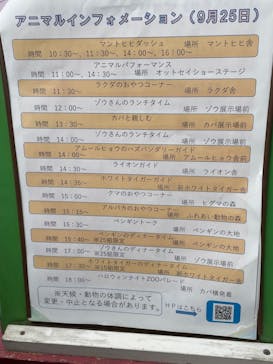 アニマルインフォメーション(9月25日)
マントヒヒダッシュ
時間 10:30~、11:30~、14:00~、16:00~ 場所 マントヒヒ舎
アニマルパフォーマンス
時間 11:00~、14:30~ 場所 オットセイショーステージ
ラクダのおやつコーナー
時間 11:30~ 場所 ラクダ舎
ゾウさんのランチタイム
時間 12:00~ 場所 ゾウ展示場前
カバと親しむ
時間 13:30~ 場所 カバ展示場前
ゾウさんのランチタイム
時間 14:00~ 場所 ゾウ展示場前
アムールヒョウのハズバンダリーガイド
時間 14:30~ 場所 アムールヒョウ舎前
ライオンガイド
時間 14:35~ 場所 ライオン舎
ホワイトタイガーガイド
時間 14:35~ 場所 新ホワイトタイガー舎
クマのおやつコーナー
時間 15:00~ 場所 ヒグマの森
アルパカのおやつコーナー
時間 15:15~ 場所 ふれあい動物の森
ペンギントーク
時間 15:15~ 場所 ペンギンの大地
ペンギンのディナータイム
時間 15:40~ ※25組限定 場所 ペンギンの大地
ゾウさんのディナータイム
時間 17:00~ ※25組限定 場所 ゾウ展示場前
ホワイトタイガーのディナータイム
時間 17:30~ 場所 新ホワイトタイガー舎
ハロウィンナイトZOOパレード
時間 18:00~ 場所 カバ横発着
※天候・動物の体調によって
変更・中止となる場合があります。
HPはこちら